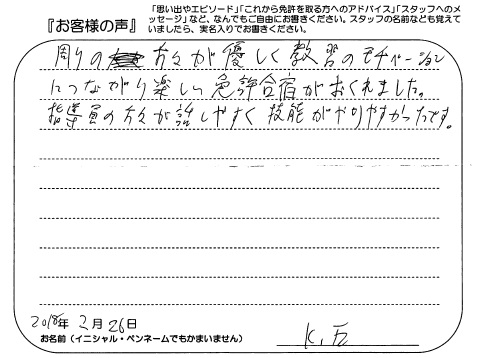 『お客様の声』
「思い出やエピソード」「これから免許を取る方へのアドバイス」「スタッフへのメッセージ」など、なんでもご自由にお書きください。スタッフの名前なども覚えていましたら、実名入りでお書きください。
周りの 方々が優しく教習のモチベーション
につながり楽しい免許合宿がおくれました。
指導員の方々が話しやすく技能がやりやすかったです。
2018年 2月 26日
お名前（イニシャル・ペンネームでもかまいません）
K.